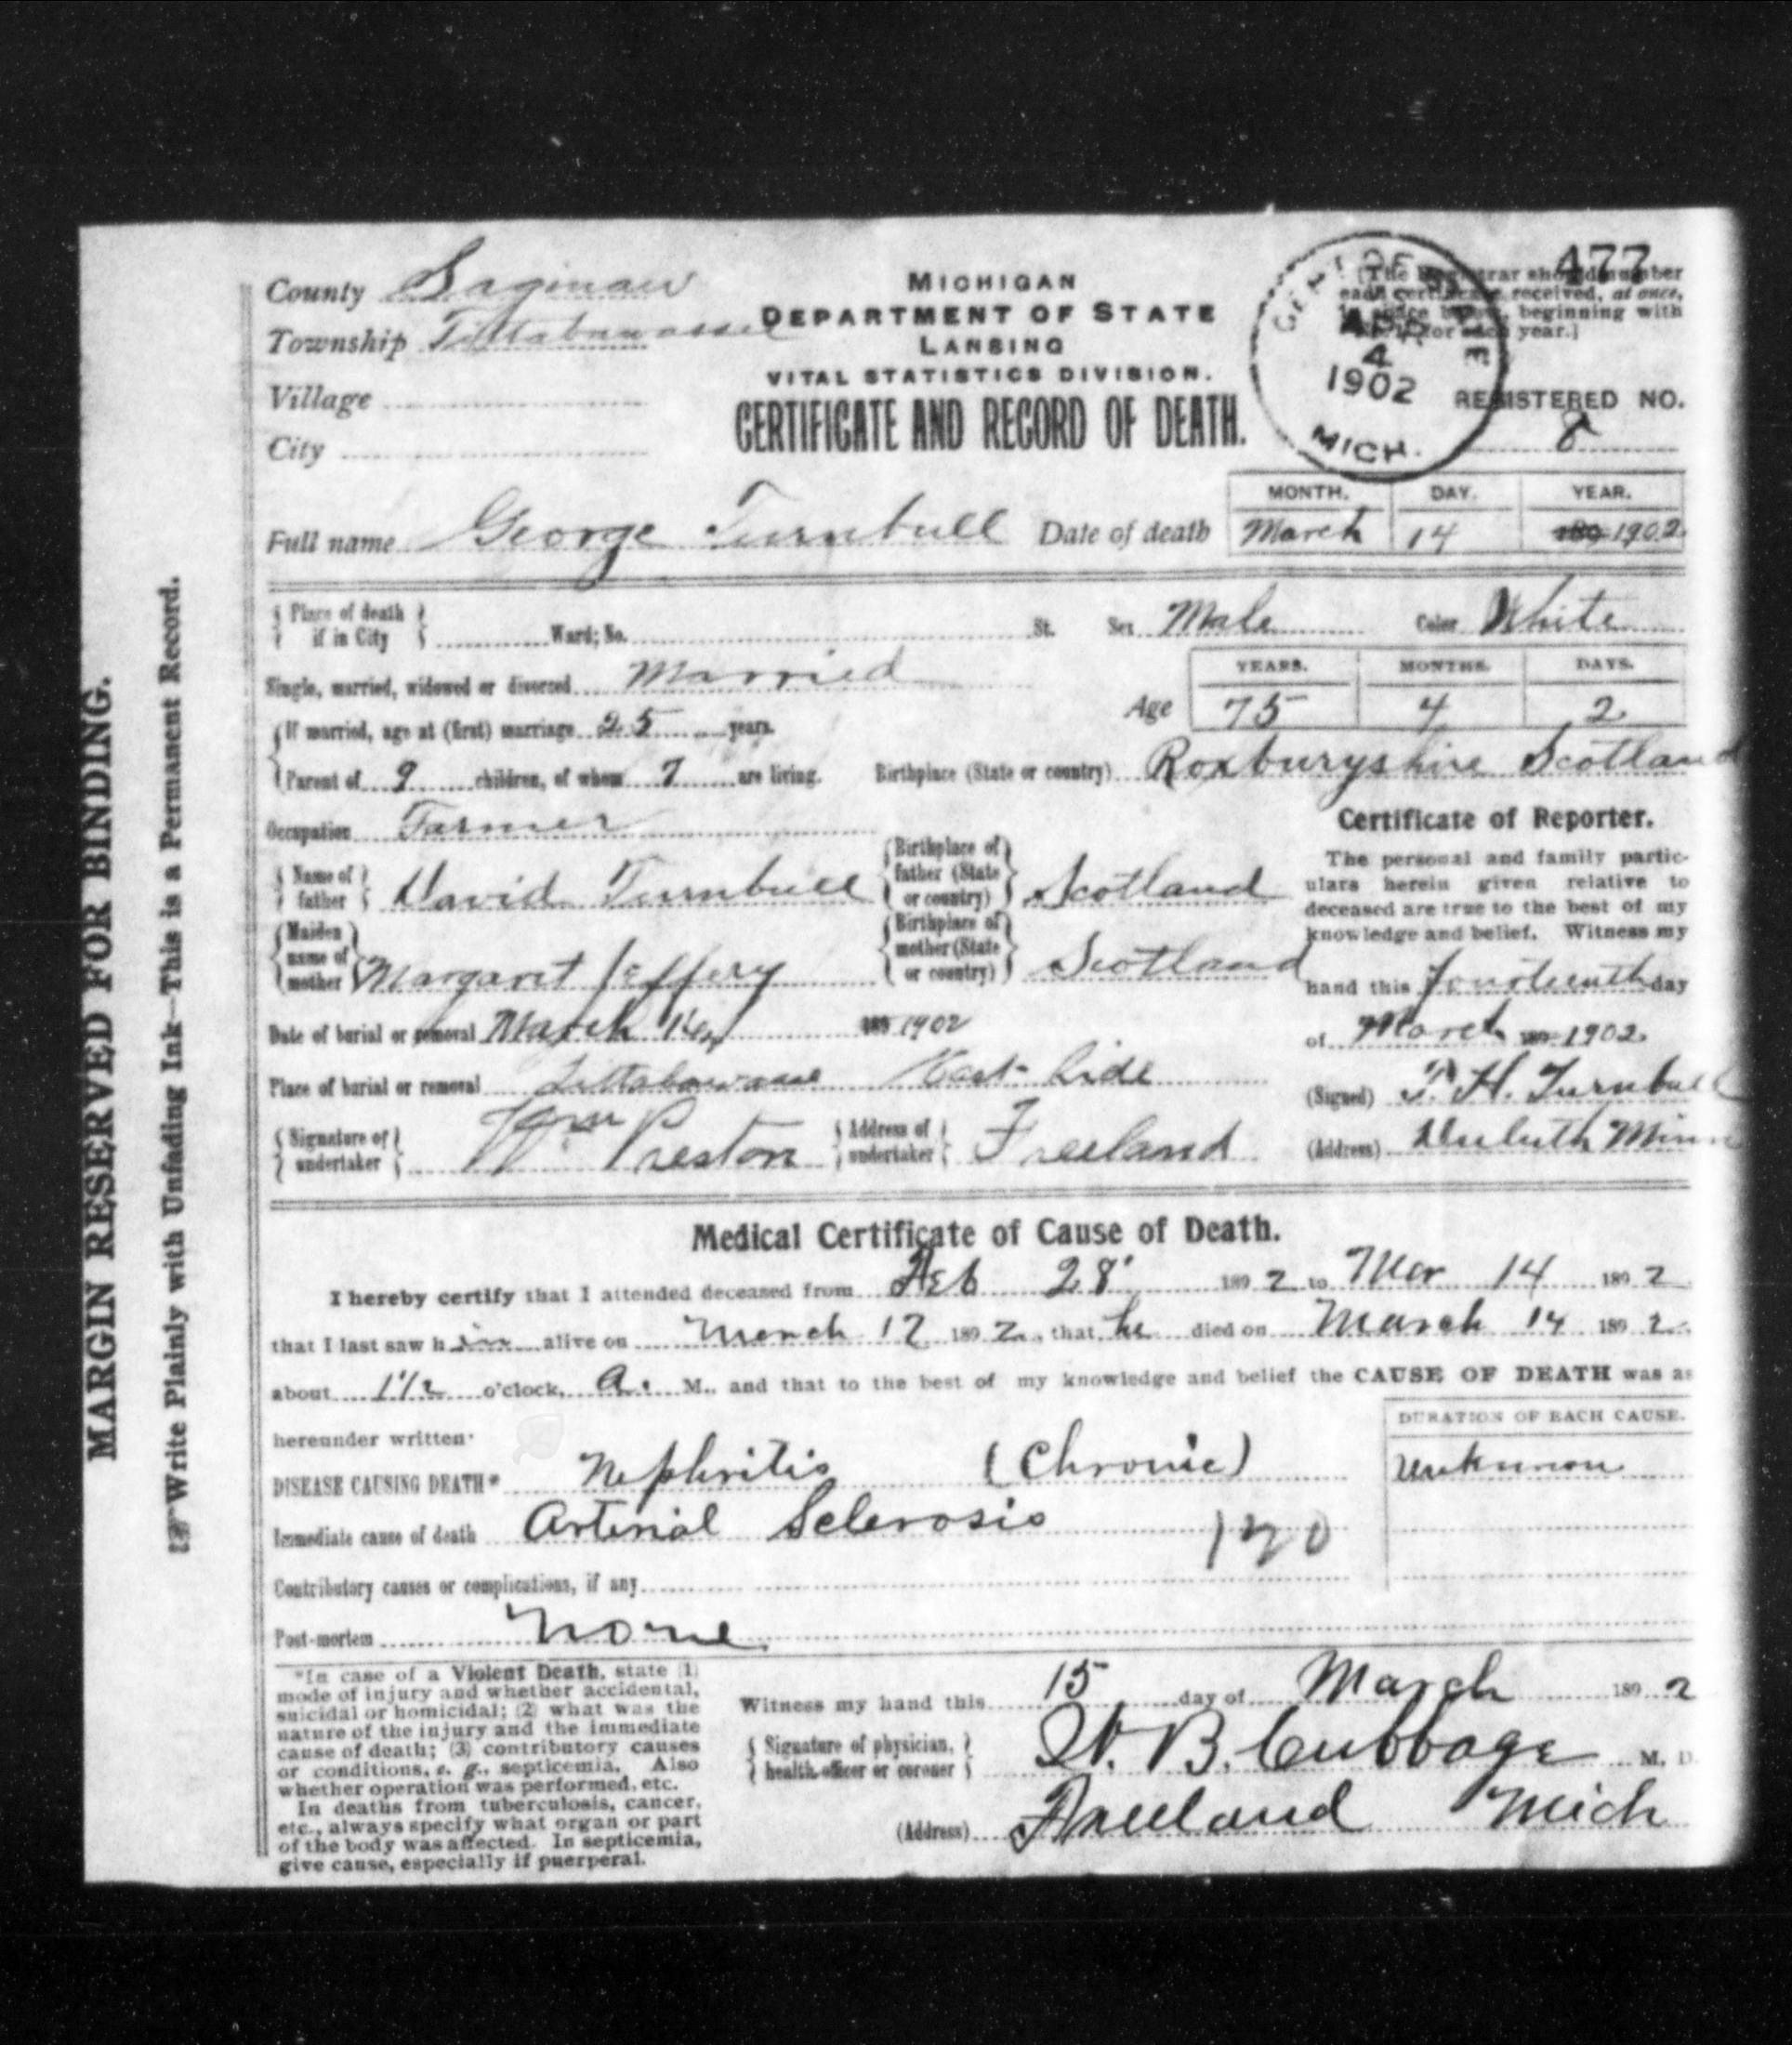 477
County Saginaw
MICHIGAN
[The Registrar should number
each certificate received, at once,
in space below, beginning with
for each year.]
Township Tittabawassee
DEPARTMENT OF STATE
LANSING
VITAL STATISTICS DIVISION.
4
1902
MICH.
Village
CERTIFICATE AND RECORD OF DEATH.
REGISTERED NO.
City
8
MONTH. DAY. YEAR.
Full name George Turnbull Date of death March 14 189 1902
{ Place of death if in City } Ward; No. St. Sex Male Color White
Single, married, widowed or divorced Married
YEARS. MONTHS. DAYS.
Age 75 4 2
{ If married, age at (first) marriage 25 years.
Parent of 9 children, of whom 7 are living. Birthplace (State or country) Roxburyshire Scotland
Occupation Farmer
Certificate of Reporter.
{ Name of father } David Turnbull { Birthplace of father (State or country) } Scotland
{ Maiden name of mother } Margaret Jeffery { Birthplace of mother (State or country) } Scotland
The personal and family partic-
ulars herein given relative to
deceased are true to the best of my
knowledge and belief. Witness my
hand this fourteenth day
of March 189 1902
Date of burial or removal March 189 1902
Place of burial or removal Tittabawasse Side
(Signed) H. Turnbull
{ Signature of undertaker } Wm Preston { Address of undertaker } Freeland
(Address) Duluth Minn
Medical Certificate of Cause of Death.
I hereby certify that I attended deceased from Feb 28 189 2 to Mar 14 189 2
that I last saw h im alive on March 12 189 2, that he died on March 14 189 2.
about 1 1/2 o'clock, a. M., and that to the best of my knowledge and belief the CAUSE OF DEATH was as
hereunder written:
DURATION OF EACH CAUSE.
DISEASE CAUSING DEATH* Nephritis (Chronic) Unknown
Immediate cause of death Arterial Sclerosis 120
Contributory causes or complications, if any
Post-mortem None
*In case of a Violent Death, state (1)
mode of injury and whether accidental,
suicidal or homicidal; (2) what was the
nature of the injury and the immediate
cause of death; (3) contributory causes
or conditions, e. g., septicemia. Also
whether operation was performed, etc.
In deaths from tuberculosis, cancer,
etc., always specify what organ or part
of the body was affected. In septicemia,
give cause, especially if puerperal.
Witness my hand this 15 day of March 189 2
{ Signature of physician, health officer or coroner } B. Cubbage M. D.
(Address) Freeland Mich
MARGIN RESERVED FOR BINDING.
☞ Write Plainly with Unfading Ink—This is a Permanent Record.